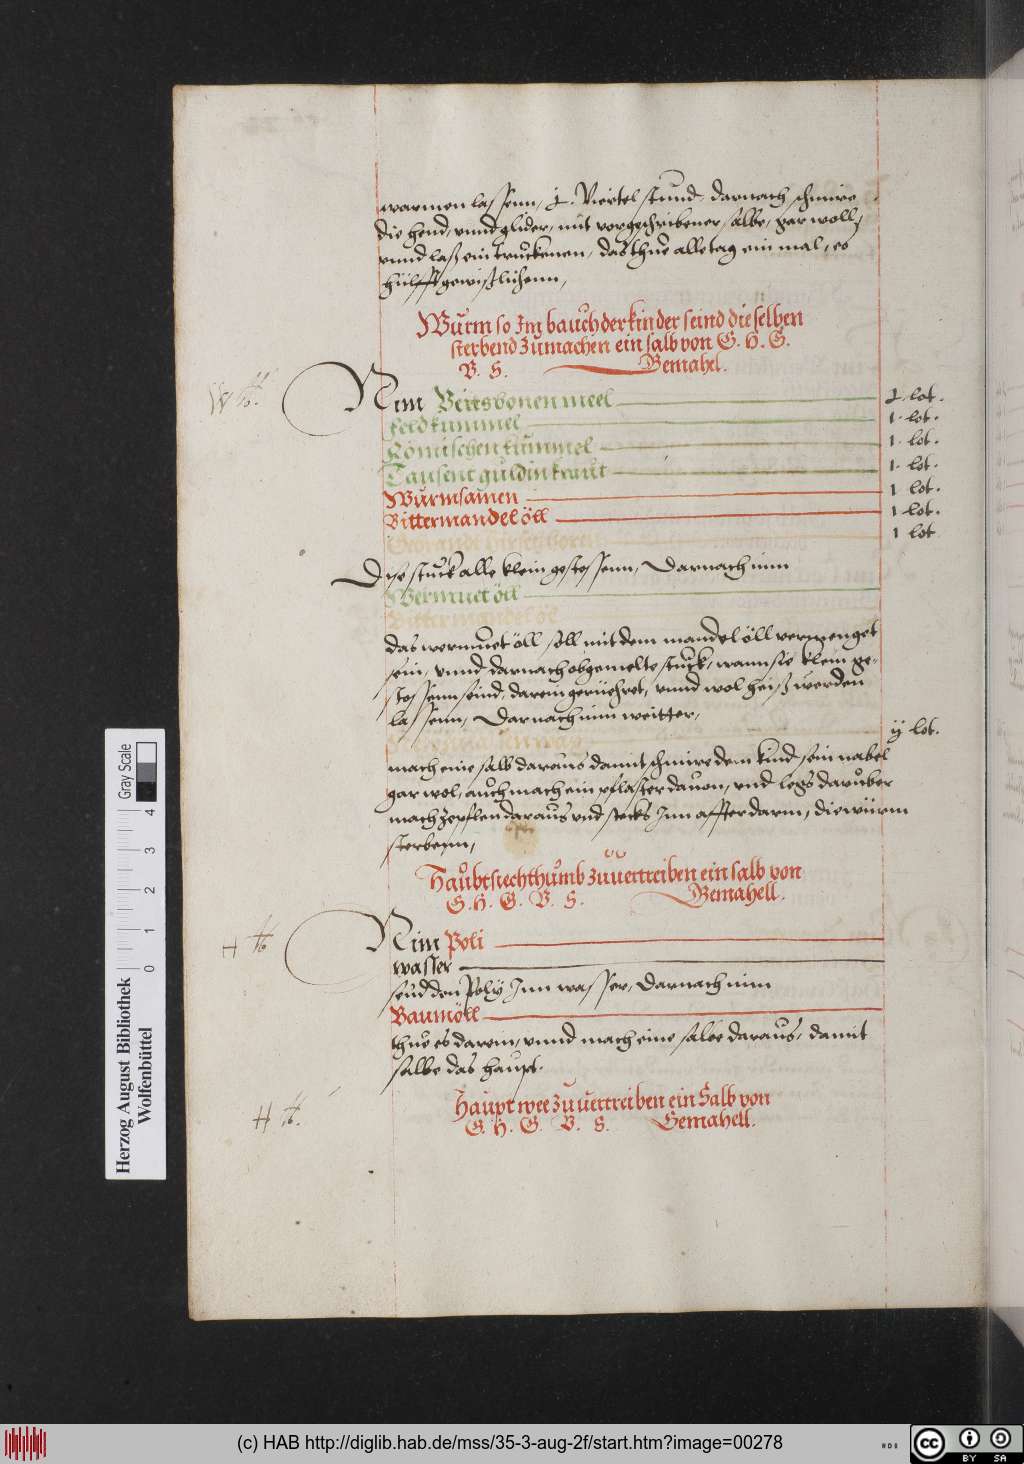 warmen lassenn, 1. Viertel stund, darnach schmire
die hend, vnnd glider, mit vorgeschribener salbe, gar woll,
vnnd laß ein truckenen, das thue alle tag ein mal, es
hülfft gewißlichenn,
Würm so Im bauch der kinder seind die selben
sterbend zumachen ein salb von G. H. G.
V. S. Gemahel.
Nim Veitsbonen meel 1 lot.
feldkümmel 1. lot.
Römischen kümmel 1. lot.
Tausent guldin kraut 1. lot.
Würmsamen 1 lot.
Bittermandel öll 1 lot.
1 lot
Dise stuck alle klein gestossenn, Darnach nim
Wermuet öll
Bittermandel öl
das wermuet öll soll mit dem mandel öll vermenget
sein, vnnd darnach obgemelte stuck, wann sie klein ge-
stossenn seind, darein gerüehret, vnnd wol heiß werden
lassenn, Darnach nim weitter,
ij lot.
mach eine salb daraus damit schmire dem kind sein nabel
gar wol, auch mach ein pflaster dauon, vnd legs darüber
mach zepflen daraus vnd stecks Inn affterdarm, die würm
sterbenn,
Haubtsiechthumb zuuertreiben ein salb von
G. H. G. V. S. Gemahell.
H
Nim Poli
wasser
seud den Poly Inn wasser, Darnach nim
Baumöll
thue es darein, vnnd mach eine salbe daraus, damit
salbe das haupt.
Haupt wee zuuertreiben ein Salb von
G. H. G. V. S. Gemahell.
H
Herzog August Bibliothek
Wolfenbüttel
0 1 2 3 4
Gray Scale
(c) HAB http://diglib.hab.de/mss/35-3-aug-2f/start.htm?image=00278
cc BY SA